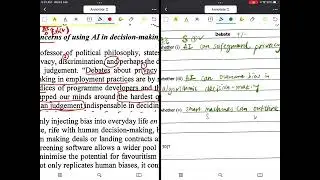 Annotate
Annotate
ncerns of using AI in decision-making
Debate +/-
S V
rofessor of political philosophy, states
vacy, discrimination and perhaps the
judgement. "Debates about privacy
aking in employment practices are by
dices of programme developers and th
pped our minds around the hardest o
an judgement indispensable in decidin
only injecting bias into everyday life
, rife with human decision-making,
n making deals or landing contracts a
creening software allows a wider pool
minimise the potential for favouritism
t only replicates human biases, it con
whether (i) AI can safeguard privacy
whether (ii) AI can overcome bias in
algorithmic decision-making
whether (iii) smart machines can outthink
S V